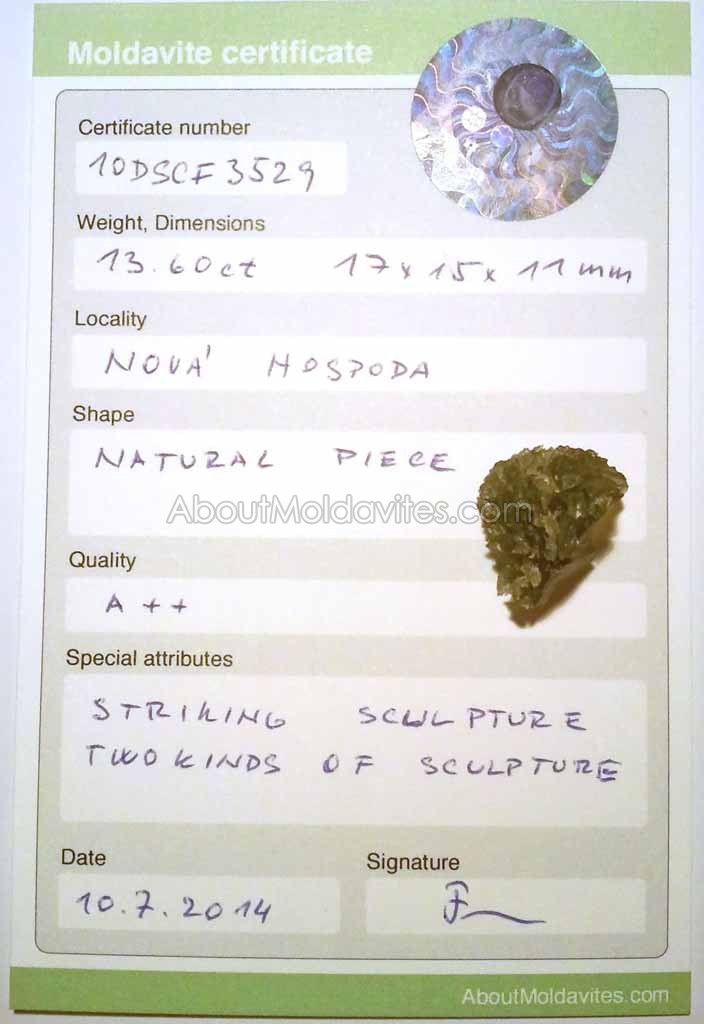 Moldavite certificate
Certificate number
10DSCF3529
Weight, Dimensions
13.60ct 17x15x11mm
Locality
NOVÁ HOSPODA
Shape
NATURAL PIECE
AboutMoldavites.com
Quality
A++
Special attributes
STRIKING SCULPTURE
TWO KINDS OF SCULPTURE
Date
Signature
10.7.2014
AboutMoldavites.com